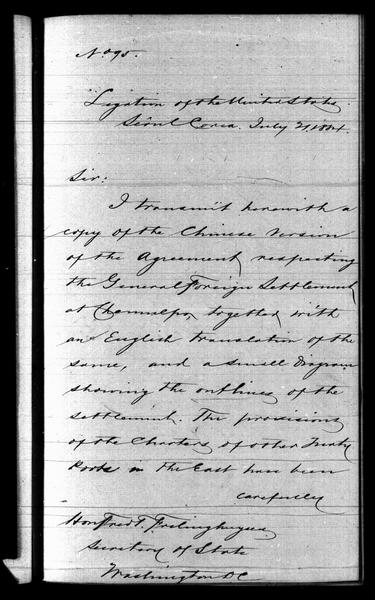 No 95.
Legation of the United States
Seoul Corea. July 21, 1884.
Sir:
I transmit herewith a
copy of the Chinese version
of the Agreement, respecting
the General Foreign Settlement,
at Chemulpo, together with
an English translation of the
same, and a small diagram
showing the outlines of the
settlement. The provisions
of the Charters of other Treaty
Ports in the East have been
carefully
Hon Fred. T. Frelinghuysen
Secretary of State
Washington DC